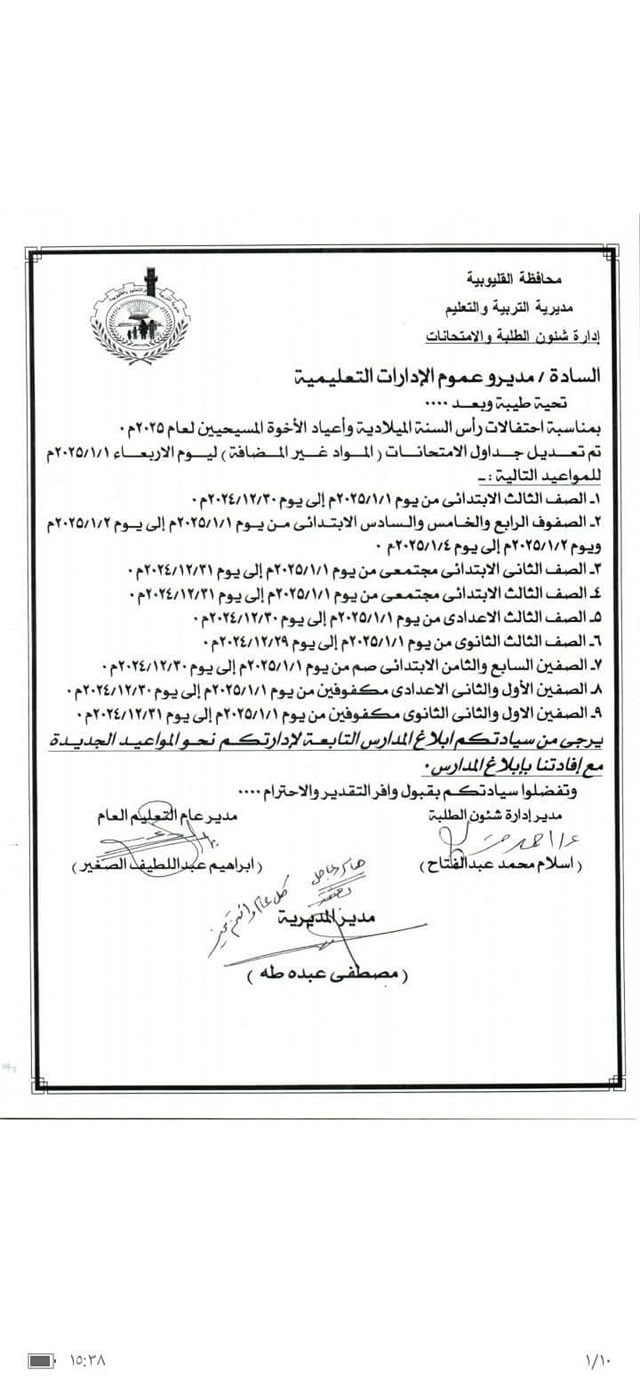 محافظة القليوبية
مديرية التربية والتعليم
إدارة شئون الطلبة والامتحانات
السادة / مديرو عموم الإدارات التعليمية
تحية طيبة وبعد ....
بمناسبة احتفالات رأس السنة الميلادية وأعياد الأخوة المسيحيين لعام ٢٠٢٥م .
تم تعديل جداول الامتحانات ( المواد غير المضافة ) ليوم الاربعاء ٢٠٢٥/١/١م
للمواعيد التالية :ـ
١ـ الصف الثالث الابتدائى من يوم ٢٠٢٥/١/١م إلى يوم ٢٠٢٤/١٢/٣٠م .
٢ـ الصفوف الرابع والخامس والسادس الابتدائى من يوم ٢٠٢٥/١/١م إلى يوم ٢٠٢٥/١/٢م
ويوم ٢٠٢٥/١/٢م إلى يوم ٢٠٢٥/١/٤م .
٣ـ الصف الثانى الابتدائى مجتمعى من يوم ٢٠٢٥/١/١م إلى يوم ٢٠٢٤/١٢/٣١م .
٤ـ الصف الثالث الابتدائى مجتمعى من يوم ٢٠٢٥/١/١م إلى يوم ٢٠٢٤/١٢/٣١م .
٥ـ الصف الثالث الاعدادى من يوم ٢٠٢٥/١/١م إلى يوم ٢٠٢٤/١٢/٣٠م .
٦ـ الصف الثالث الثانوى من يوم ٢٠٢٥/١/١م إلى يوم ٢٠٢٤/١٢/٢٩م .
٧ـ الصفين السابع والثامن الابتدائى صم من يوم ٢٠٢٥/١/١م إلى يوم ٢٠٢٤/١٢/٣٠م .
٨ـ الصفين الأول والثانى الاعدادى مكفوفين من يوم ٢٠٢٥/١/١م إلى يوم ٢٠٢٤/١٢/٣٠م .
٩ـ الصفين الاول والثانى الثانوى مكفوفين من يوم ٢٠٢٥/١/١م إلى يوم ٢٠٢٤/١٢/٣١م .
يرجى من سيادتكم ابلاغ المدارس التابعة لإدارتكم نحو المواعيد الجديدة
مع إفادتنا بإبلاغ المدارس .
وتفضلوا سيادتكم بقبول وافر التقدير والاحترام ....
مدير إدارة شئون الطلبة
مدير عام التعليم العام
( اسلام محمد عبدالفتاح )
( ابراهيم عبداللطيف الصغير )
كل عام وانتم بخير
مدير المديرية
( مصطفى عبده طه )
١٥:٣٨
١/١٠